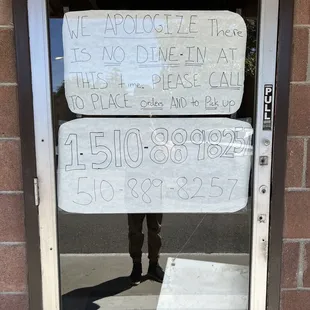 WE APOLOGIZE There
IS NO DINE-IN AT
THIS time. PLEASE CALL
TO PLACE orders AND to Pick up
PULL
510-889-8257